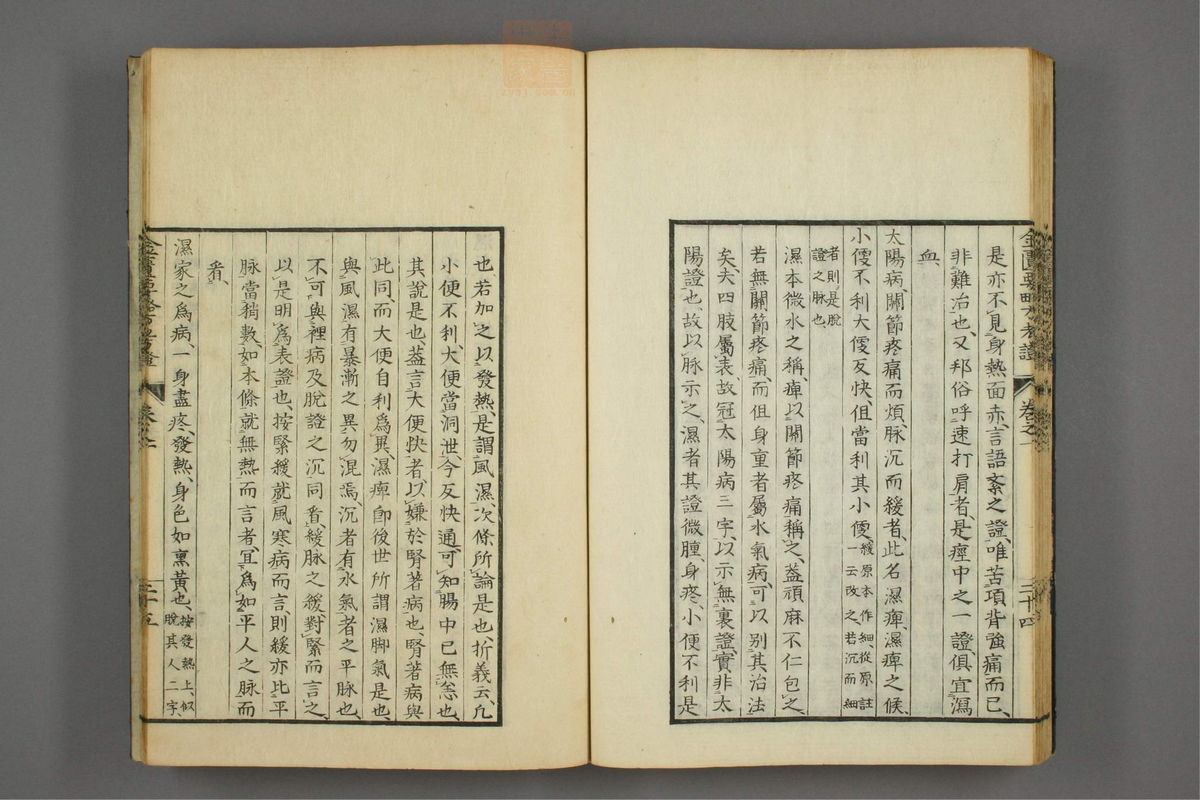 是亦不見身熱面赤、言語紊之證、唯苦項背強痛而已、
非難治也、又邦俗呼速打肩者、是痙中之一證俱宜瀉
血、
太陽病、關節疼痛而煩、脉沉而緩者、此名濕痺、濕痺之候、
小便不利、大便反快、但當利其小便、緩原本作細、從原註
一云改之、若沉而細
者則是脫
證之脉也、
濕本微水之稱、痺以關節疼痛稱之、蓋頑麻不仁包之、
若無關節疼痛、而但身重者、屬水氣病、可以別其治法
矣、夫四肢屬表、故冠太陽病三字、以示無裏證、實非太
陽證也、故以脉示之、濕者其證微腫、身疼、小便不利是
也、若加之以發熱、是謂風濕、次條所論是也、折義云、凡
小便不利、大便當洞泄、今反快通、可知腸中已無恙也、
其說是也、蓋言大便快者、以嫌於腎著病也、腎著病與
此同、而大便自利爲異、濕痺卽後世所謂濕脚氣是也、
與風濕有暴漸之異、勿混焉、沉者有水氣者之平脉也、
不可與裡病及脫證之沉同看、緩脉之緩、對緊而言之、
以是明爲表證也、按緊緩就風寒病而言、則緩亦比平
脉當稍數、如本條就無熱而言者、宜爲如平人之脉而
看、
濕家之爲病、一身盡疼、發熱、身色如熏黃也、按發熱上、似
脫其人二字、